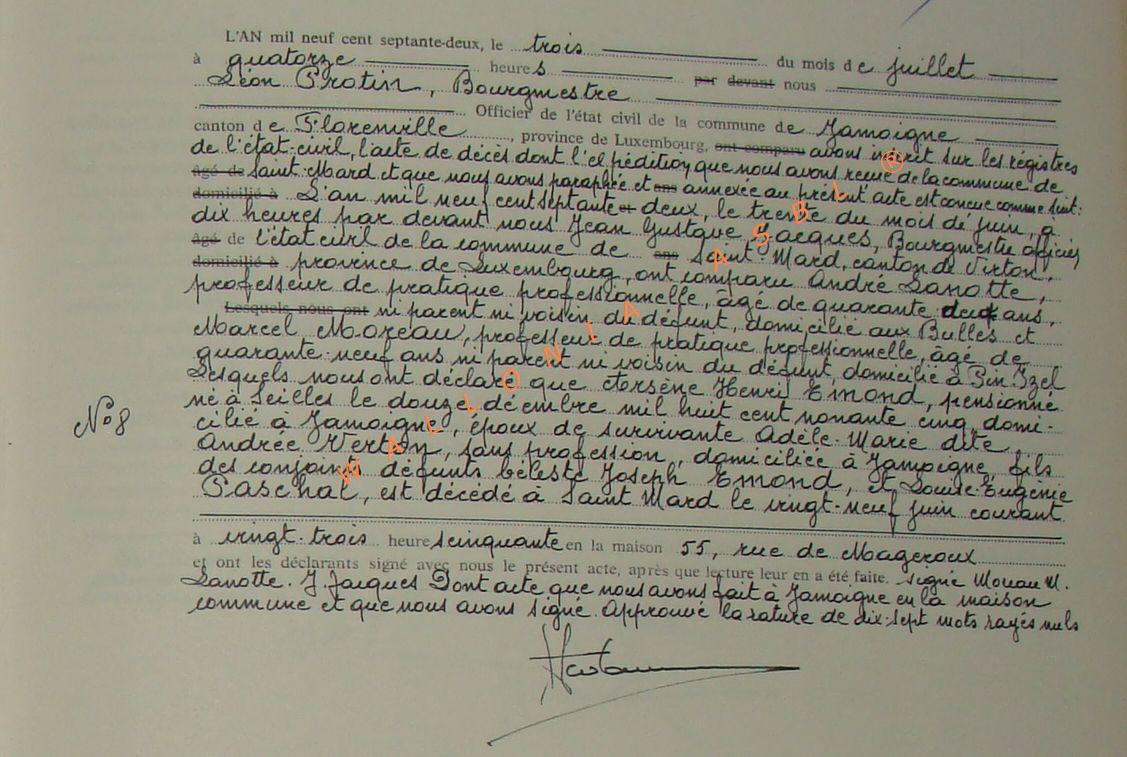 L'AN mil neuf cent septante-deux, le trois du mois de juillet
à quatorze heures par devant nous
Léon Protin, Bourgmestre
Officier de l'état civil de la commune de Jamoigne
canton de Florenville, province de Luxembourg, ont comparu avons inscrit sur les régistres
de l'état-civil, l'acte de décès dont l'expédition que nous avons reçue de la commune de
âgé de Saint-Mard et que nous avons paraphée et ans annexée au présent acte est conçue comme suit:
domicilié à L'an mil neuf cent septante et deux, le trente du mois de juin, à
dix heures par devant nous Jean Gustave Jacques, Bourgmestre officier
âgé de l'état civil de la commune de ans Saint Mard, canton de Virton,
domicilié à province de Luxembourg, ont comparu André Lanotte,
professeur de pratique professionnelle, âgé de quarante deux ans,
Lesquels nous ont ni parent ni voisin du défunt, domicilié aux Bulles et
Marcel Moreau, professeur de pratique professionnelle, âgé de
quarante-neuf ans ni parent ni voisin du défunt, domicilié à Pin Izel
Lesquels nous ont déclaré que Arsène Henri Emond, pensionné
né à Seilles le douze décembre mil huit cent nonante cinq, domi-
cilié à Jamoigne, époux de survivante Adèle-Marie dite
Andrée Verlon, sans profession, domiciliée à Jamoigne, fils
des conjoints défunts Céleste Joseph Emond, et Louise-Eugénie
Paschal, est décédé à Saint Mard le vingt-neuf juin courant
à vingt-trois heures cinquante en la maison 55, rue de Mageroux
et ont les déclarants signé avec nous le présent acte, après que lecture leur en a été faite. signé M.
Lanotte. J. Jacques Dont acte que nous avons fait à Jamoigne en la maison
commune et que nous avons signé. Approuvé la rature de dix-sept mots rayés nuls
N° 8
WALLONIA ASBL ®